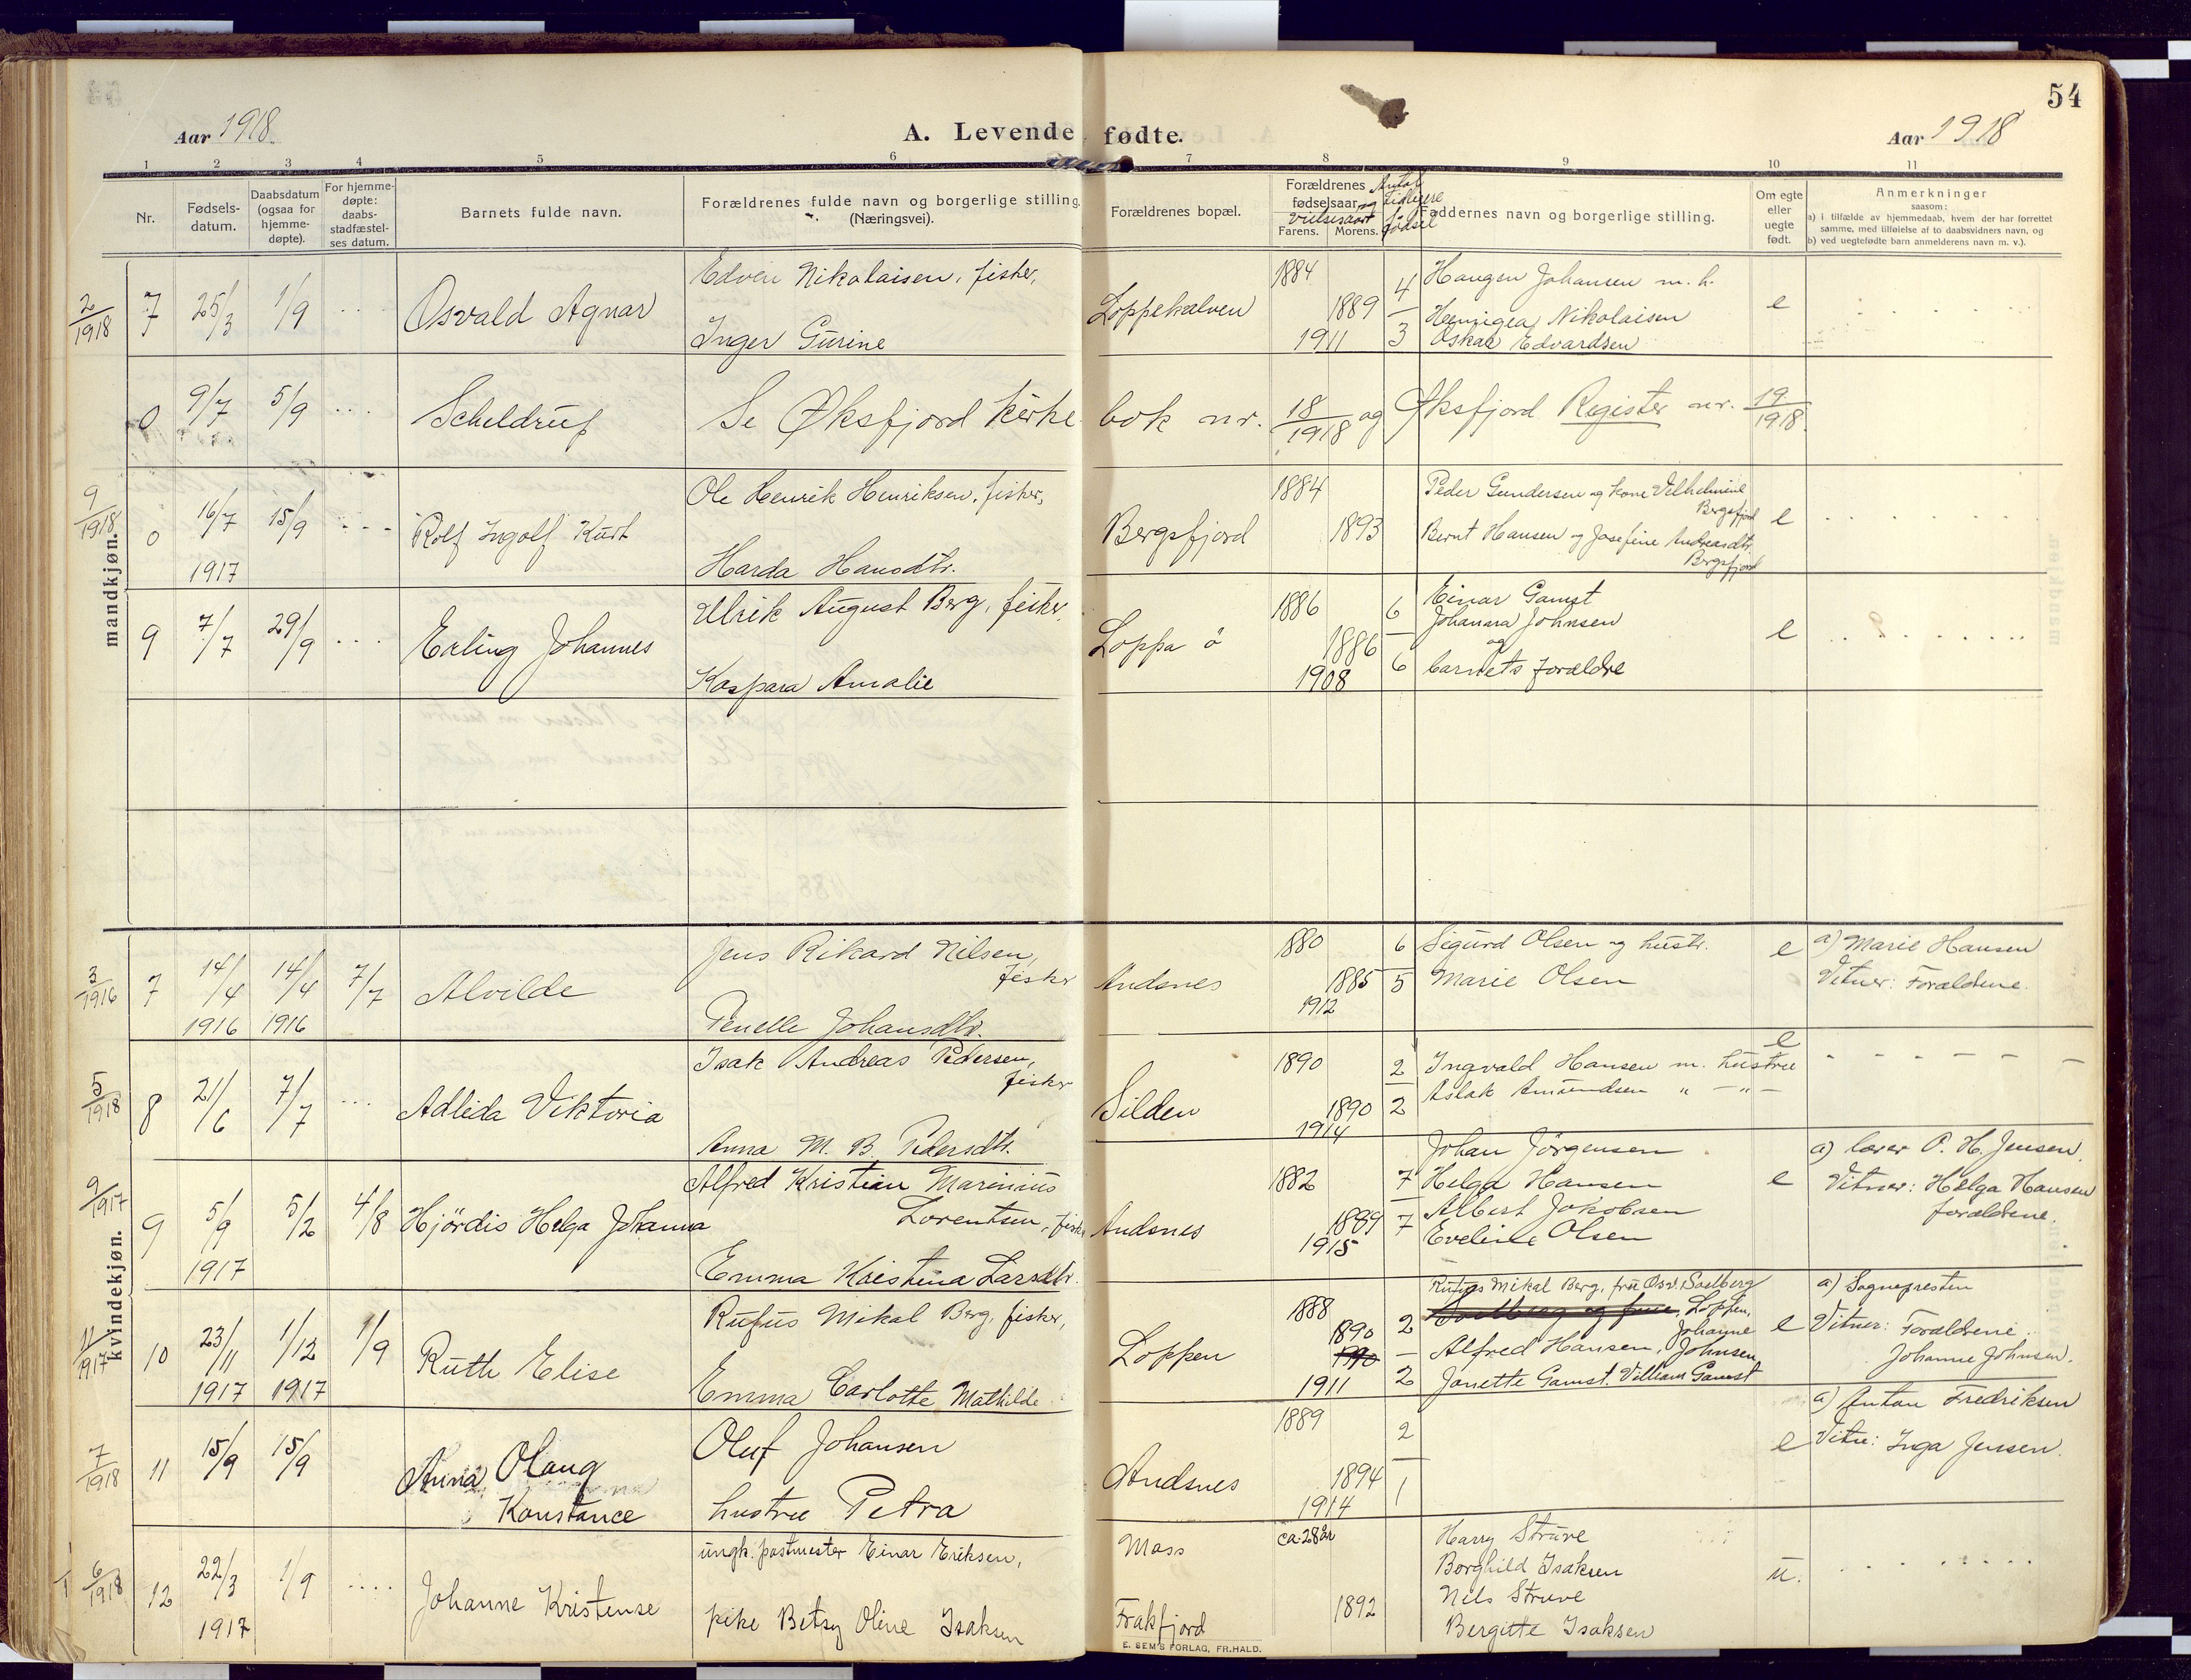 54
Aar 1918.
A. Levende fødte.
Aar 1918
1 2 3 4 5 6 7 8 9 10 11
Nr.
Fødsels-
datum.
Daabsdatum
(ogsaa for
hjemme-
døpte).
For hjemme-
døpte:
daabs-
stadfæstel-
ses datum.
Barnets fulde navn.
Forældrenes fulde navn og borgerlige stilling
(Næringsvei).
Forældrenes bopæl.
Forældrenes
fødselsaar og
vielsesaar
Farens. Morens.
Antal
tidligere
fødsel
Faddernes navn og borgerlige stilling.
Om egte
eller
uegte
født.
Anmerkninger
saasom:
a) i tilfælde av hjemmedaab, hvem der har forrettet
samme, med tilføielse af to daabsvidners navn, og
b) ved uegtefødte barn anmelderens navn m. v.).
mandkjøn.
2/1918 7 25/3 1/9 Osvald Agnar
Edvin Nikolaisen, fisker,
Inger Gurine
Loppekalven
1884
1889
1911
4
3
Haugen Johansen m. h.
Nikolaisen
Oskar Edvardsen
e
0 9/7 5/9 Scheldrup Se Øksfjord kirke bok nr. 18/1918 og Øksfjord Register nr. 19/1918.
9/1918 0 16/7 15/9 Rolf Ingolf Kurt
1917
Ole Henrik Henriksen, fisker,
Harda Hansdtr.
Bergsfjord
1884
1893
Peder Gundersen og kone Vilhelmine
Bergsfjord
Bernt Hansen og Josefine Andreasdtr.
Bergsfjord
e
9 7/7 29/9 Erling Johannes
Ulrik August Berg, fisker,
Kaspara Amalie
Loppa ö
1886
1886
1908
6
6
Einar Gamst
Johanna Johnsen
og
barnets forældre
e
kvindekjøn.
3/1916 7 14/4 14/4 7/7 Alvilde
1916 1916
Jens Rikard Nilsen,
fisker
Penelle Johansdtr.
Andsnes
1880
1885
1912
6
5
Sigurd Olsen og hustr.
Marie Olsen
e
a) Marie Hansen
Vitner: Forældrene.
5/1918 8 21/6 7/7 Adleida Viktoria
Isak Andreas Pedersen,
fisker
Anna M. B. Pedersdtr.
Silden
1890
1890
1914
2
2
Ingvald Hansen m. hustru
Aslak Amundsen " — " —
e
9/1917 9 5/9 5/2 4/8 Hjördis Helga Johanna
1917
Alfred Kristian Marinius
Lorentsen, fisker
Emma Kristina Larsdtr.
Andsnes
1882
1889
1915
7
7
Johan Jörgensen
Helga Hansen
Albert Jakobsen
Eveline Olsen
e
a) lærer P. H. Jensen.
Vitner: Helga Hansen
forældrene.
11/1917 10 23/11 1/12 1/9 Ruth Elise
1917 1917
Rufus Mikal Berg, fisker,
Emma Carlotte Mathilde
Loppen
1888
1890
1911
2
2
Rufus Mikal Berg, fru Osv. Soelberg
Loppen,
Alfred Hansen, Johanne Johnsen
Janette Gamst. Villiam Gamst
e
a) Sognepresten
Vitner: Forældrene.
Johanne Johnsen.
7/1918 11 15/9 15/9 Anna Olaug
Konstance
Oluf Johansen
hustru Petra
Andsnes
1889
1894
1914
2
1
e
a) Anton Fredriksen
Vitn: Inga Jensen.
6/1918 12 22/3 1/9 Johanne Kristense
1917
ungk. postmester Einar Eriksen,
pike Betsy Oline Isaksen
Moss
Frakfjord
ca. 28 år
1892
Harry Struve
Borghild Isaksen
Nils Struve
Bergitte Isaksen
u.
E. SEM'S FORLAG, FR.HALD.